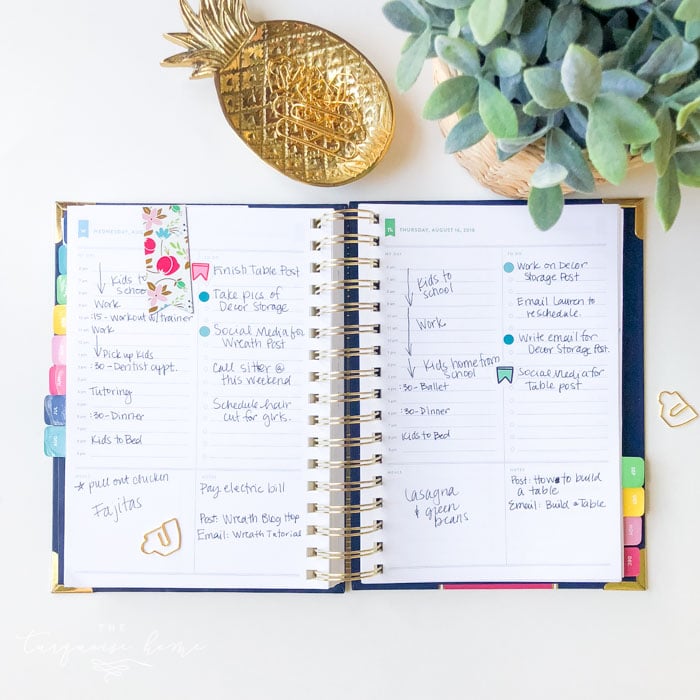 WEDNESDAY, AU
MY DAY
Kids to
school
Work
:15 - workout w/trainer
Work
Pick up kids
:30 - Dentist appt.
Tutoring
:30 - Dinner
Kids to Bed
Finish Table Post
Take pics of
Decor Storage
Social Media for
Wreath Post
Call sitter @
this weekend
Schedule hair
cut for girls.
MEALS
* pull out chicken
Fajitas
NOTES
Pay electric bill
Post: Wreath Blog Hop
Email: Wreath Tutorial
Th
THURSDAY, AUGUST 16, 2018
MY DAY
Kids to
school
Work
Kids home from
school
:30 - Ballet
:30 - Dinner
Kids to Bed
TO DO
Work on Decor
Storage Post
Email Lauren to
reschedule.
Write email for
Decor Storage Post.
Social Media for
Table post
MEALS
Lasagna
& green
beans
NOTES
Post: How to build
a table
Email: Build a Table
SEP
OCT
NOV
DEC
THE
turquoise home